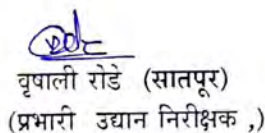 वृषाली रोडे (सातपूर)
(प्रभारी उद्यान निरीक्षक ,)